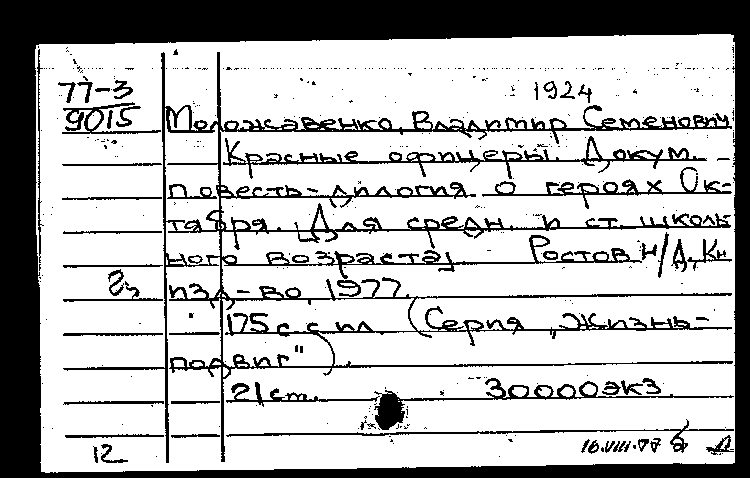 77-3 1924
9015 Моложавенко, Владимир Семенович
Красные офицеры. Докум.
повесть-дилогия о героях Ок-
тября. [Для средн. и ст. школь
ного возраста]. Ростов н/Д, Кн
изд-во, 1977.
175 с с ил. (Серия „Жизнь-
подвиг").
21 ст. 30000 экз.
12 16.VIII.77